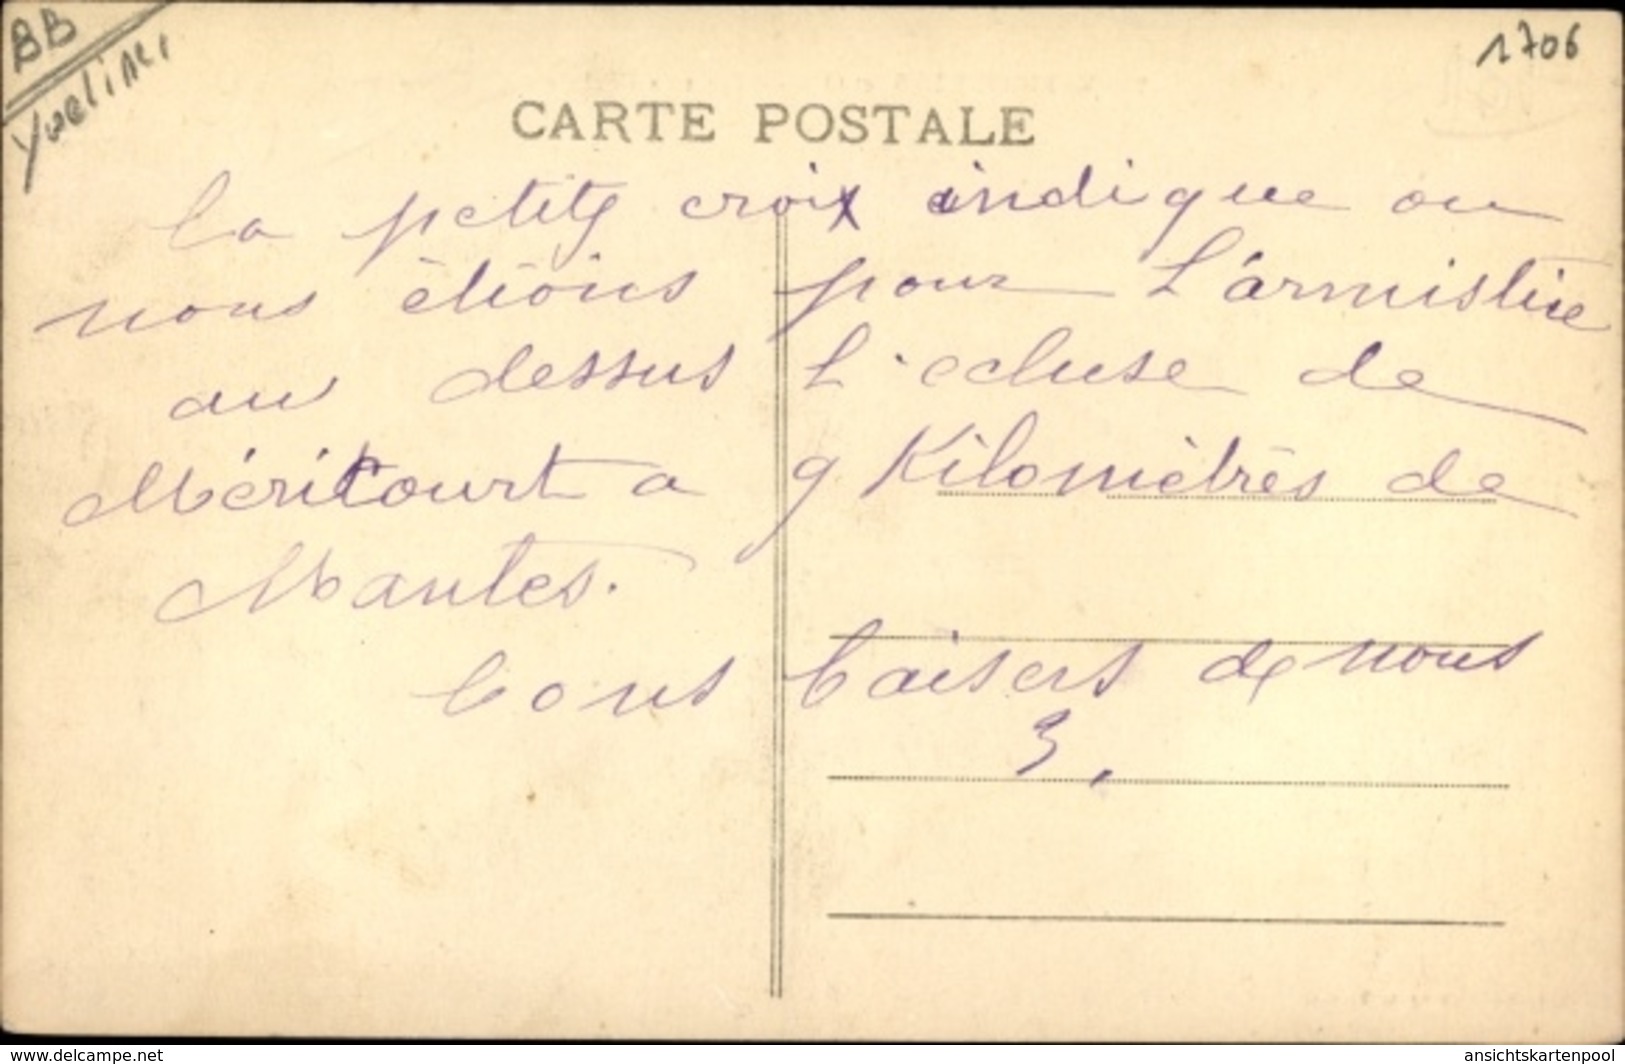 BB
Yvelines
1706
CARTE POSTALE
la petite croix indique ou
nous êtions pour L'armistice
au dessus L'ecluse de
Méricourt a 9 Kilomètres de
Mantes.
bons baisers de nous
3.
www.delcampe.net
ansichtskartenpool